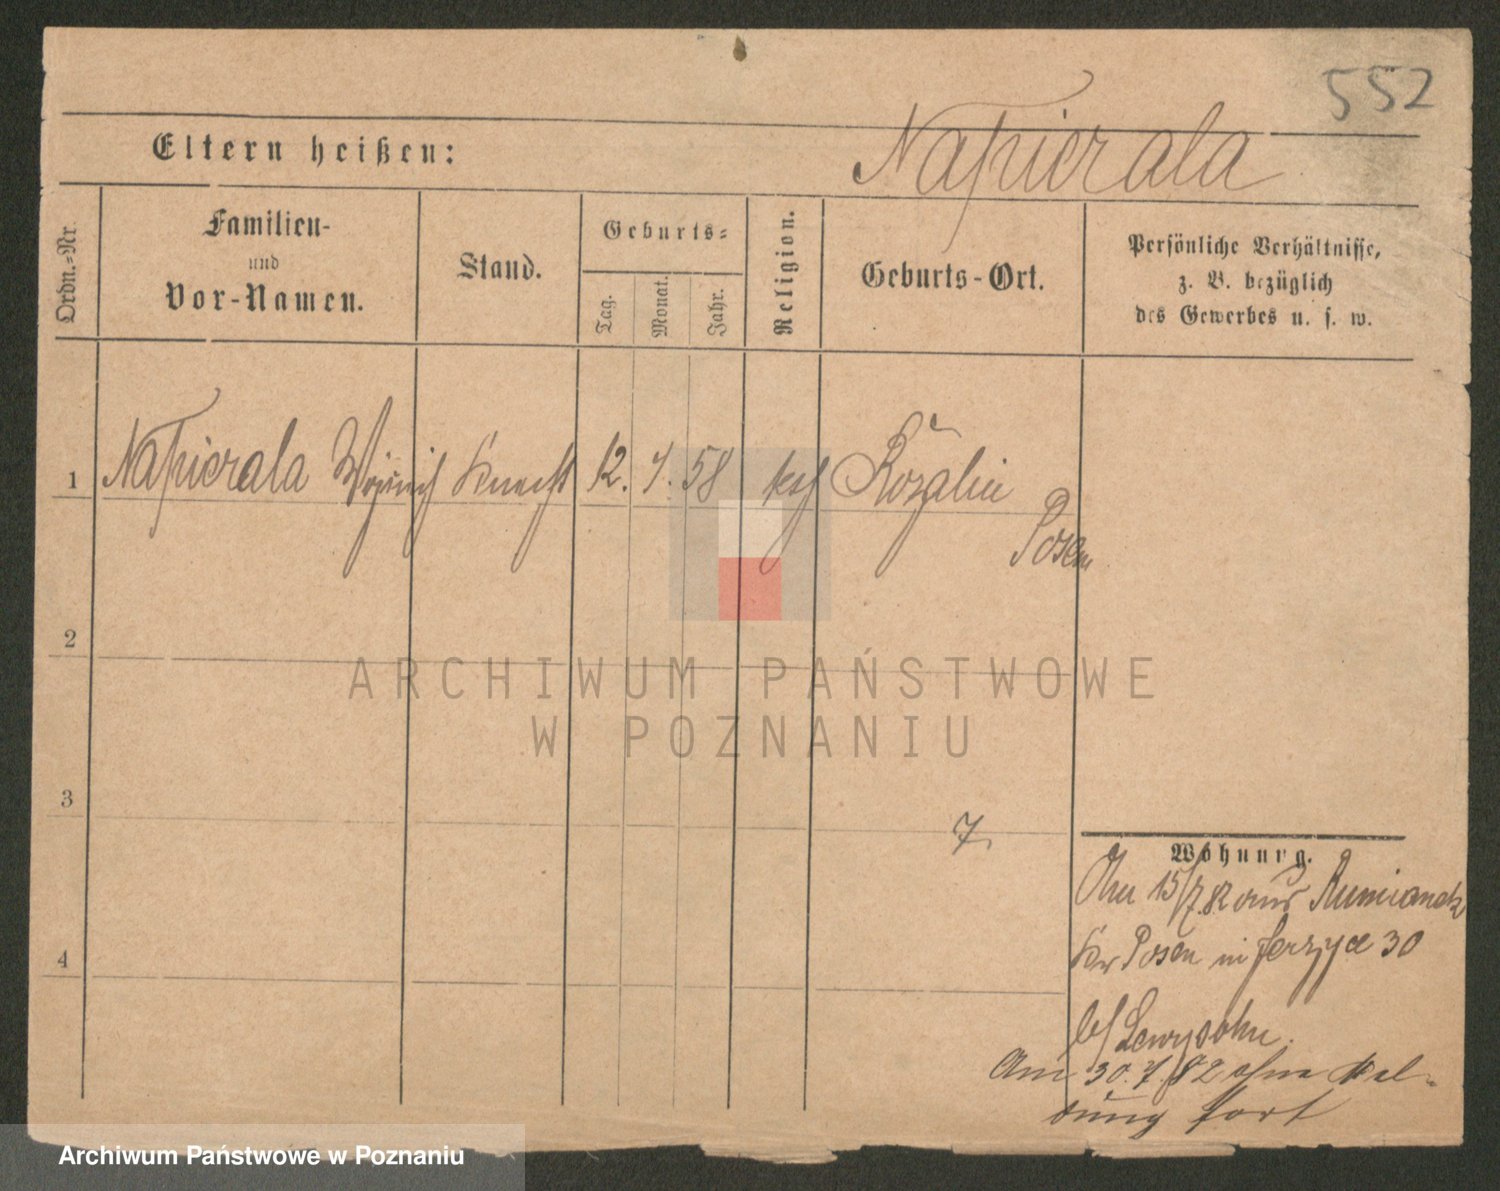 552
Eltern heißen:
Napierala
Ordn.-Nr.
Familien-
und
Vor-Namen.
Stand.
Geburts-
Tag.
Monat.
Jahr.
Religion.
Geburts-Ort.
Persönliche Verhältnisse,
z. B. bezüglich
des Gewerbes u. s. w.
1 Napierala Knecht 12. 7. 58 kth Rozalin
Posen
2
ARCHIWUM PAŃSTWOWE
W POZNANIU
3
7
Wohnung.
15/7.82 aus Rumianek
Kr Posen in Jerzyce 30
b/ Lewysohn.
4
Am 30.7.82 ohne Mel-
dung fort
Archiwum Państwowe w Poznaniu